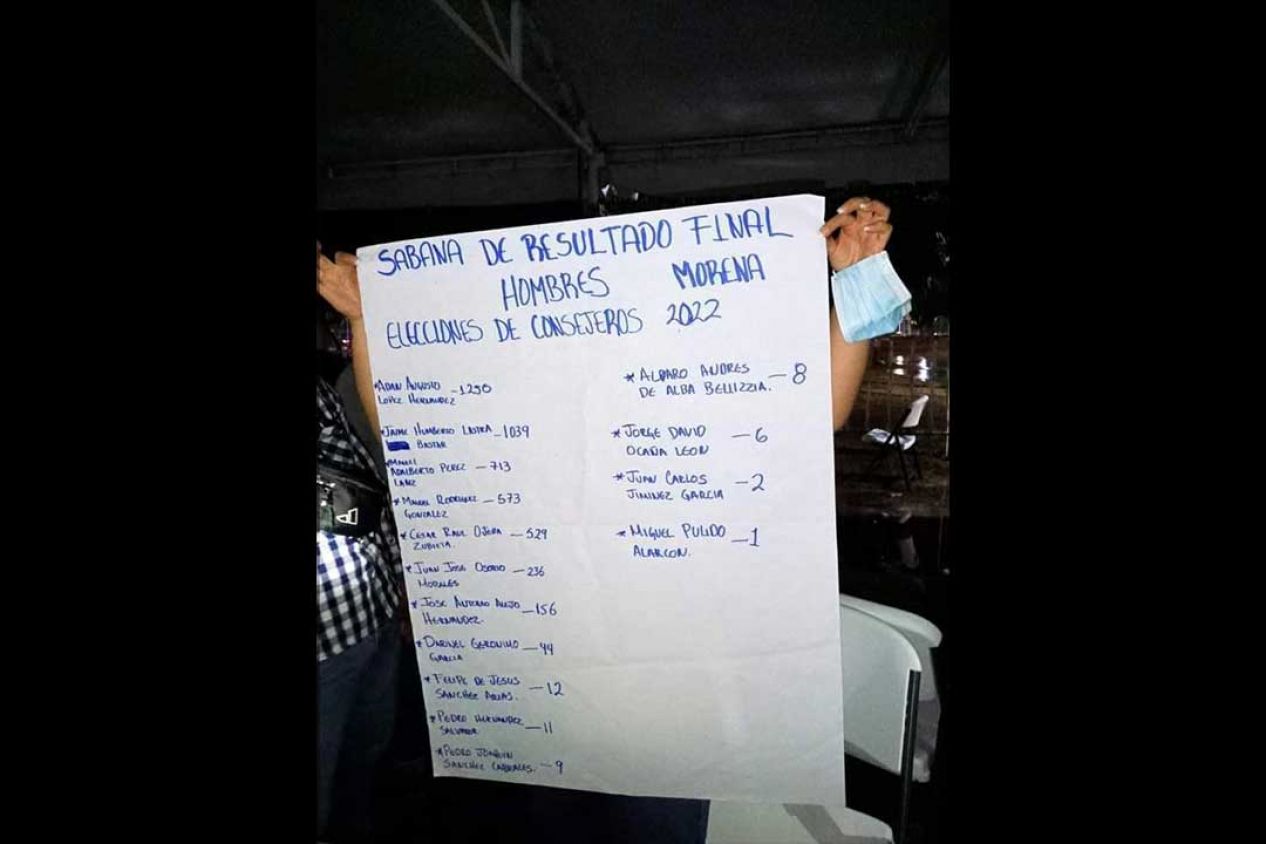 SABANA DE RESULTADO FINAL
HOMBRES MORENA
ELECCIONES DE CONSEJEROS 2022
*ADAN AUGUSTO
LOPEZ HERNANDEZ -1250
*JAIME HUMBERTO LASTRA -1039
BASTAR
*MANUEL
ADALBERTO PEREZ -713
LANZ
*MANUEL RODRIGUEZ -573
GONZALEZ
*CESAR RAUL OJEDA -529
ZUBIETA.
*JUAN JOSE OSORIO -236
MORALES
*JOSE ANTONIO ALEJO -156
HERNANDEZ.
*DARINEL GERONIMO
GARCIA
*FELIPE DE JESUS -12
SANCHEZ ARIAS.
*PEDRO HERNANDEZ -11
SALVADOR
*PEDRO JOAQUIN
SANCHEZ -9
*ALVARO ANDRES -8
DE ALBA BELLIZZIA.
*JORGE DAVID -6
OCAÑA LEON
*JUAN CARLOS -2
JIMINEZ GARCIA
*MIGUEL PULIDO -1
ALARCON.